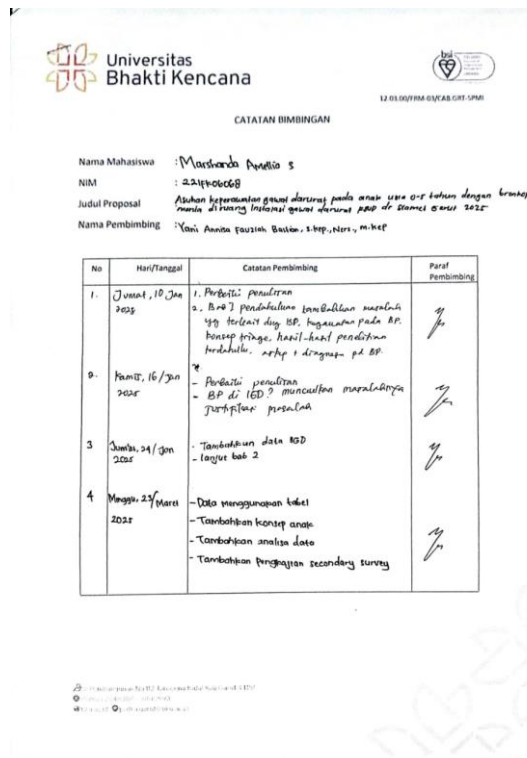 bsi
Universitas
Bhakti Kencana
12.03.00/FRM-03/CAB.GRT-SPMI
CATATAN BIMBINGAN
Nama Mahasiswa : Marshanda Amellia S
NIM : 221FK06068
Judul Proposal Asuhan keperawatan gawat darurat pada anak usia 0-5 tahun dengan bronkop
menia di ruang Instalasi gawat darurat rsup dr Slamet Garut 2025
Nama Pembimbing : Yani Annisa Fauziah Bastian, S.kep., Ners., M.kep
No Hari/Tanggal Catatan Pembimbing Paraf Pembimbing
1. Jumat, 10 Jan 2025 1. Perbaiki penulisan
2. Bab I pendahuluan tambahkan masalah
yg terkait dng BP, kegawatan pada BP,
konsep triage, hasil-hasil penelitian
terdahulu, askep + diagnosa pd BP.
2. Kamis, 16/Jan 2025 - Perbaiki penulisan
- BP di IGD? munculkan masalahnya
Justifikasi masalah
3 Jumat, 24/Jan 2025 - Tambahkan data IGD
- lanjut bab 2
4 Minggu, 23/Maret 2025 - Data menggunakan tabel
- Tambahkan konsep anak
- Tambahkan analisa data
- Tambahkan Pengkajian secondary survey